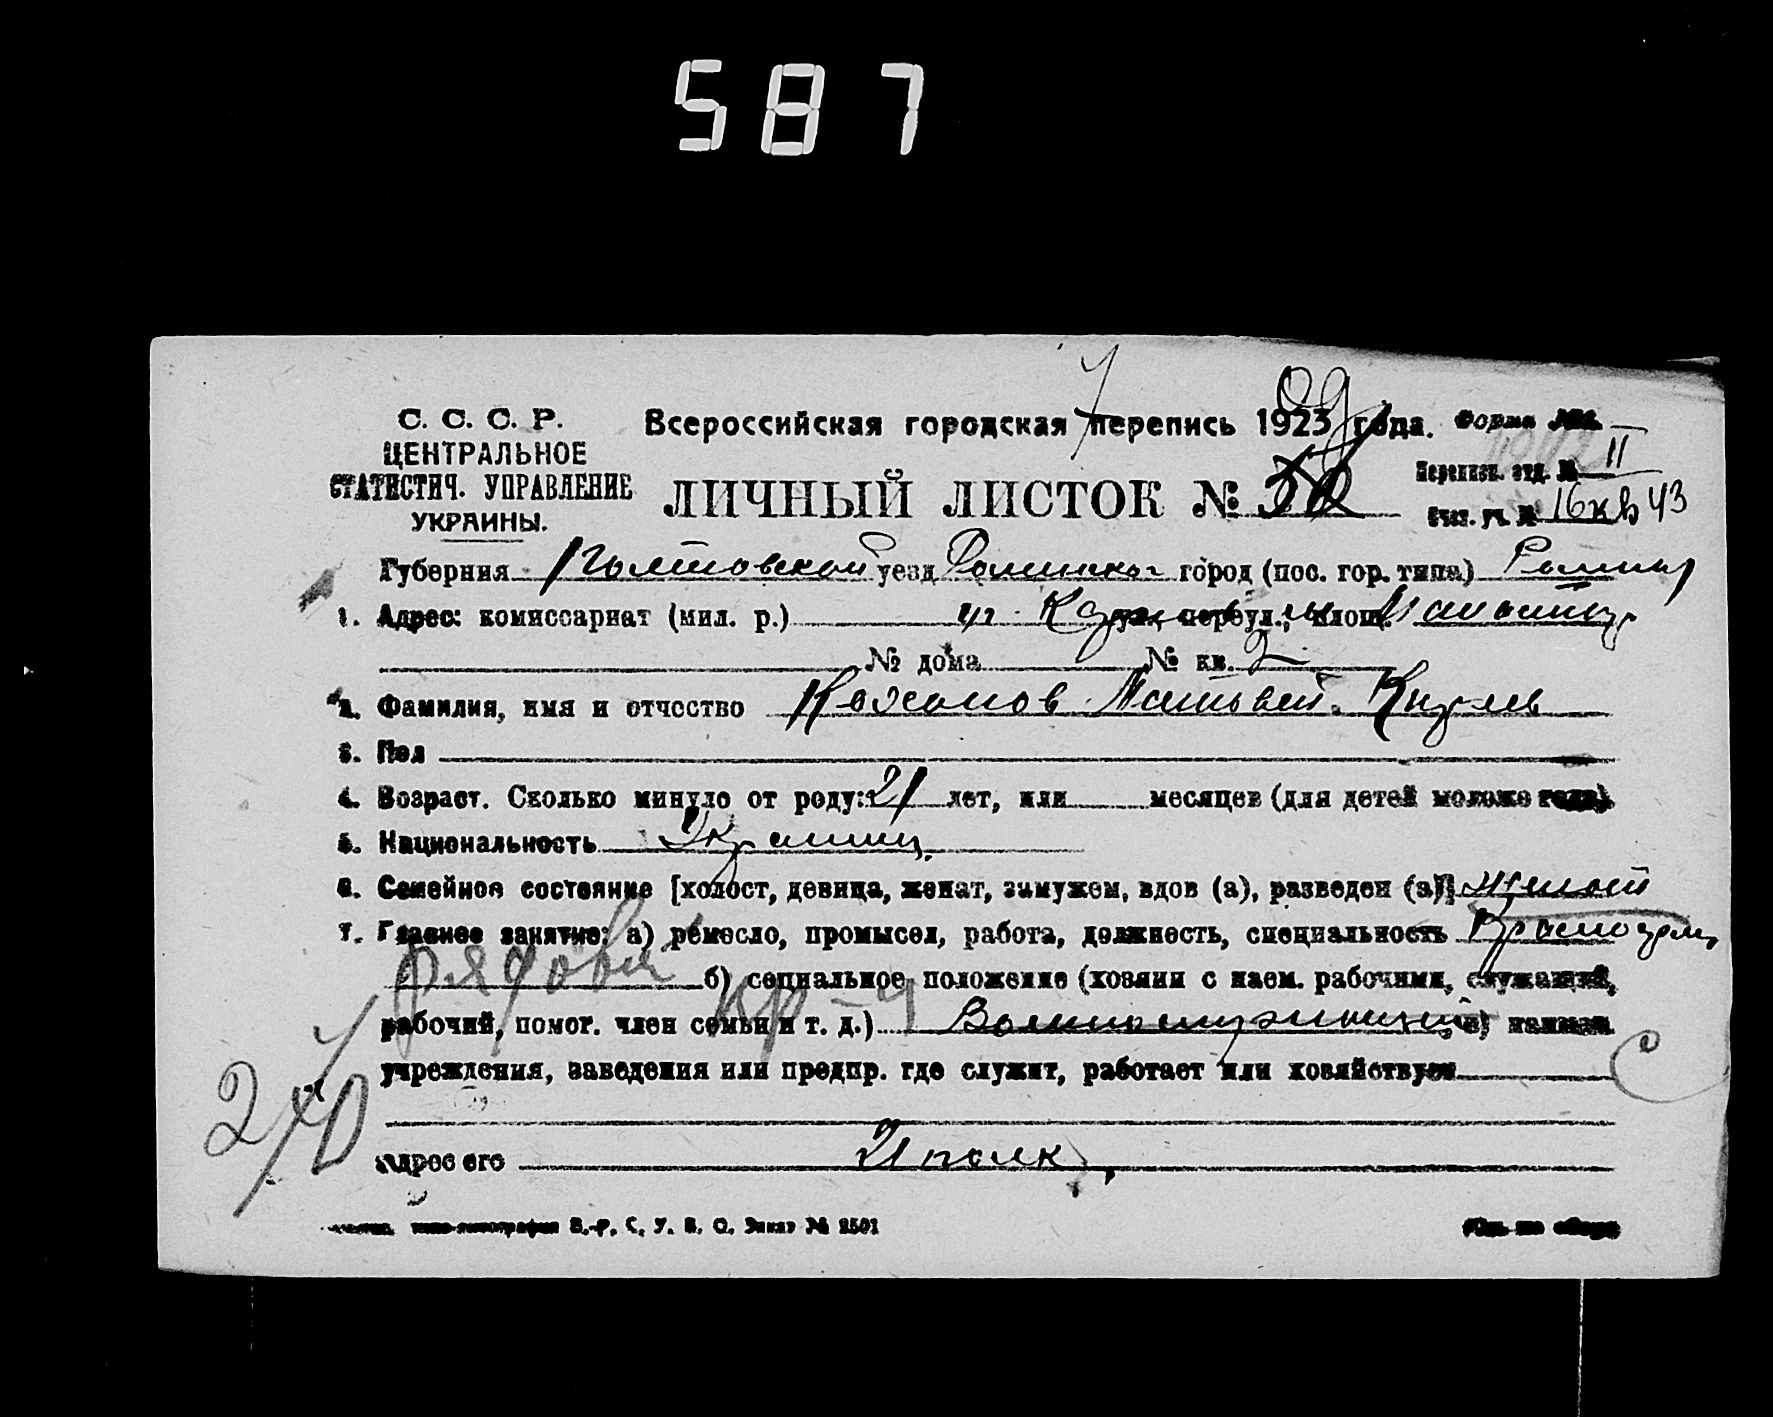 587
С. С. С. Р.
ЦЕНТРАЛЬНОЕ
СТАТИСТИЧ. УПРАВЛЕНИЕ
УКРАИНЫ.
Всероссийская городская перепись 1923 года. Форма
Переписн. отд. № 11
ЛИЧНЫЙ ЛИСТОК №
Счет. уч. № 16 кв 43
Губерния Полтавской уезд Роменской город (пос. гор. типа) Ромны
1. Адрес: комиссариат (мил. р.) ул., переул., площ.
№ дома № кв. 2
2. Фамилия, имя и отчество Коханов Матвей
3. Пол
4. Возраст. Сколько минуло от роду: 21 лет, или месяцев (для детей моложе года)
5. Национальность Украинц.
6. Семейное состояние [холост, девица, женат, замужем, вдов (а), разведен (а)]
7. Главное занятие: а) ремесло, промысел, работа, должность, специальность Красноарм
рядовой б) социальное положение (хозяин с наем. рабочими, служащий,
кр-ц
рабочий, помог. член семьи и т. д.) Военнослужащий в) названи
учреждения, заведения или предпр. где служит, работает или хозяйствует
С
2
адрес его полк
В.-Р. С. У. В. О. Заказ № 2501